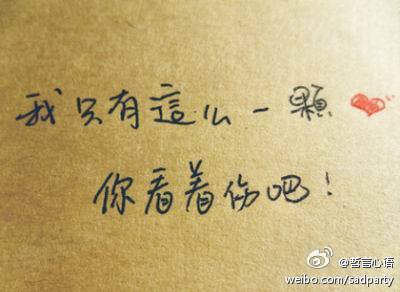 我只有這么一顆❤
你看着伤吧！
@哲言心语
weibo.com/sadparty